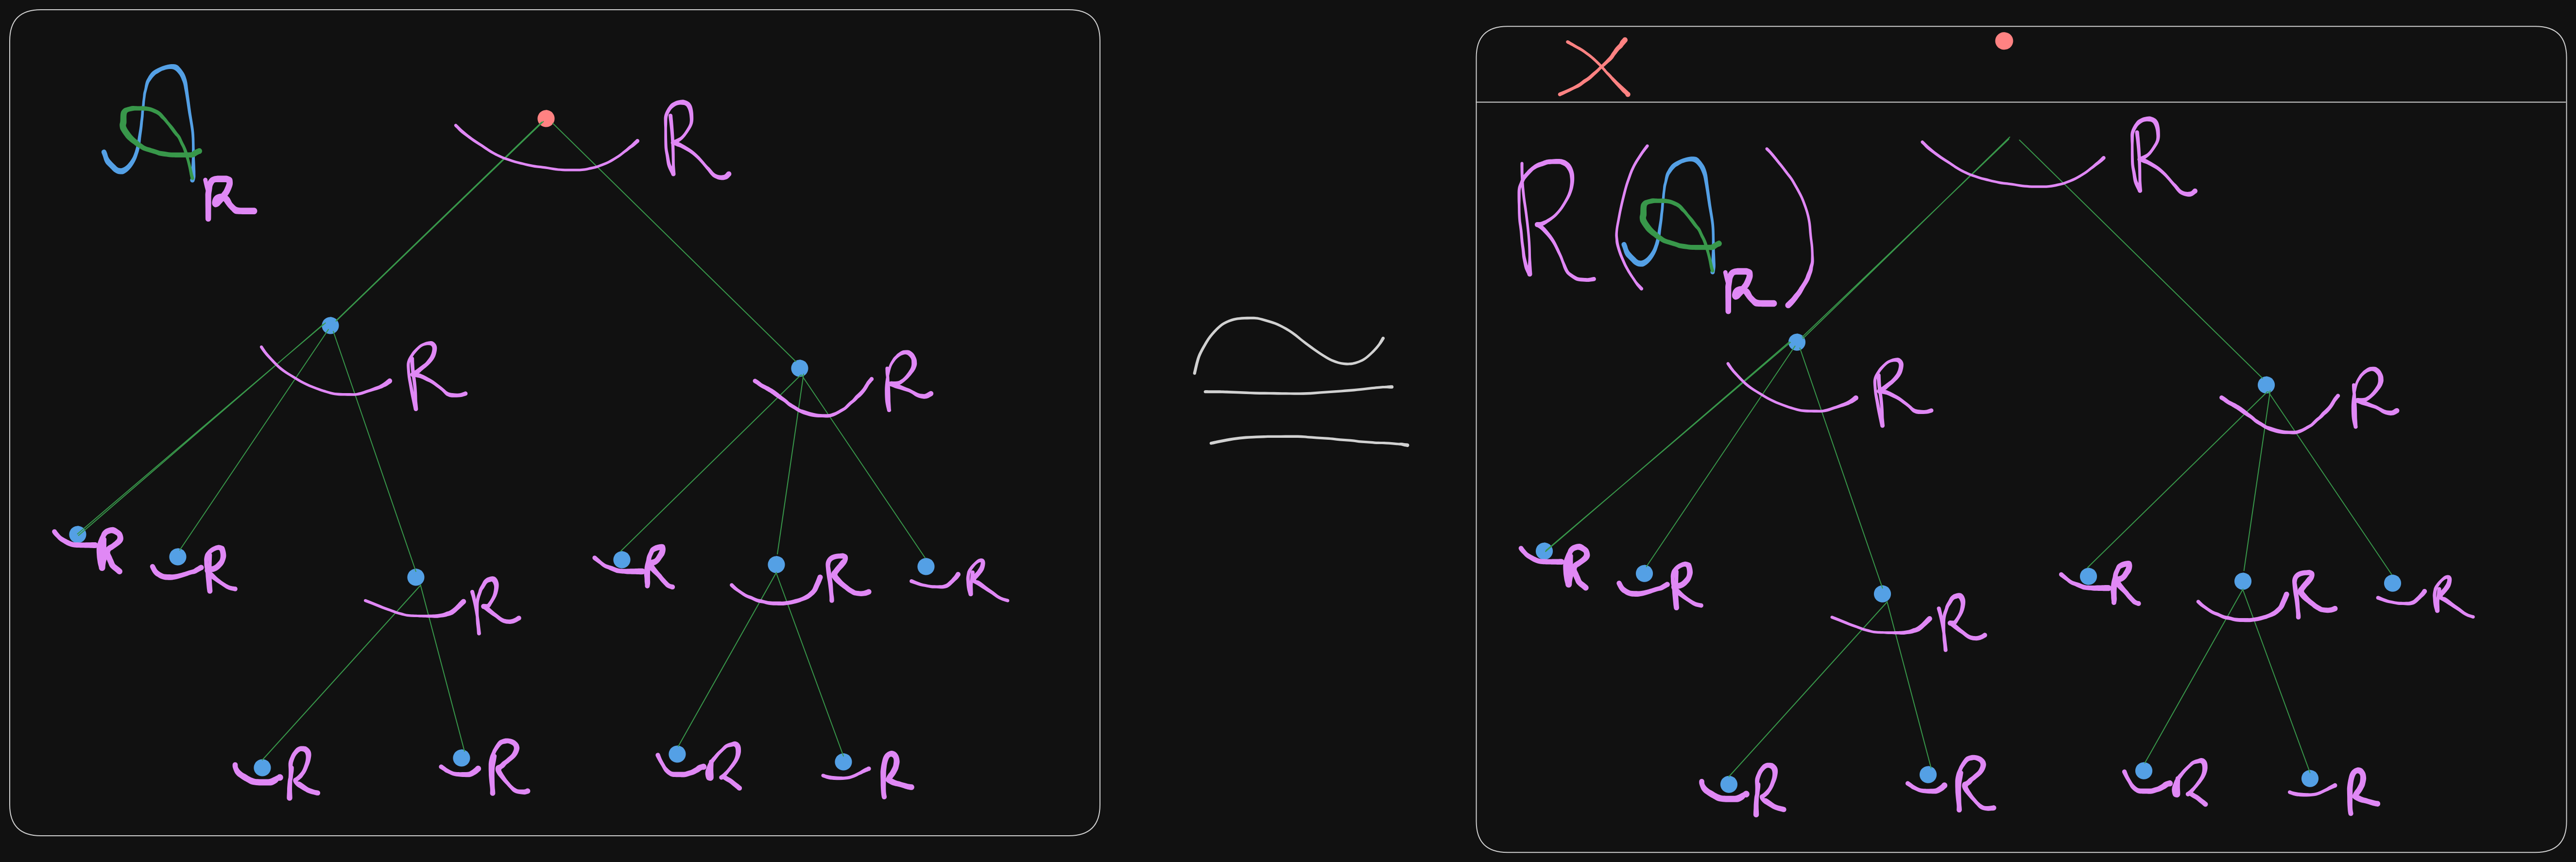 A_R R
R R
R R R R R R
R R R R
≅
X
R(A_R) R
R R
R R R R R R
R R R R